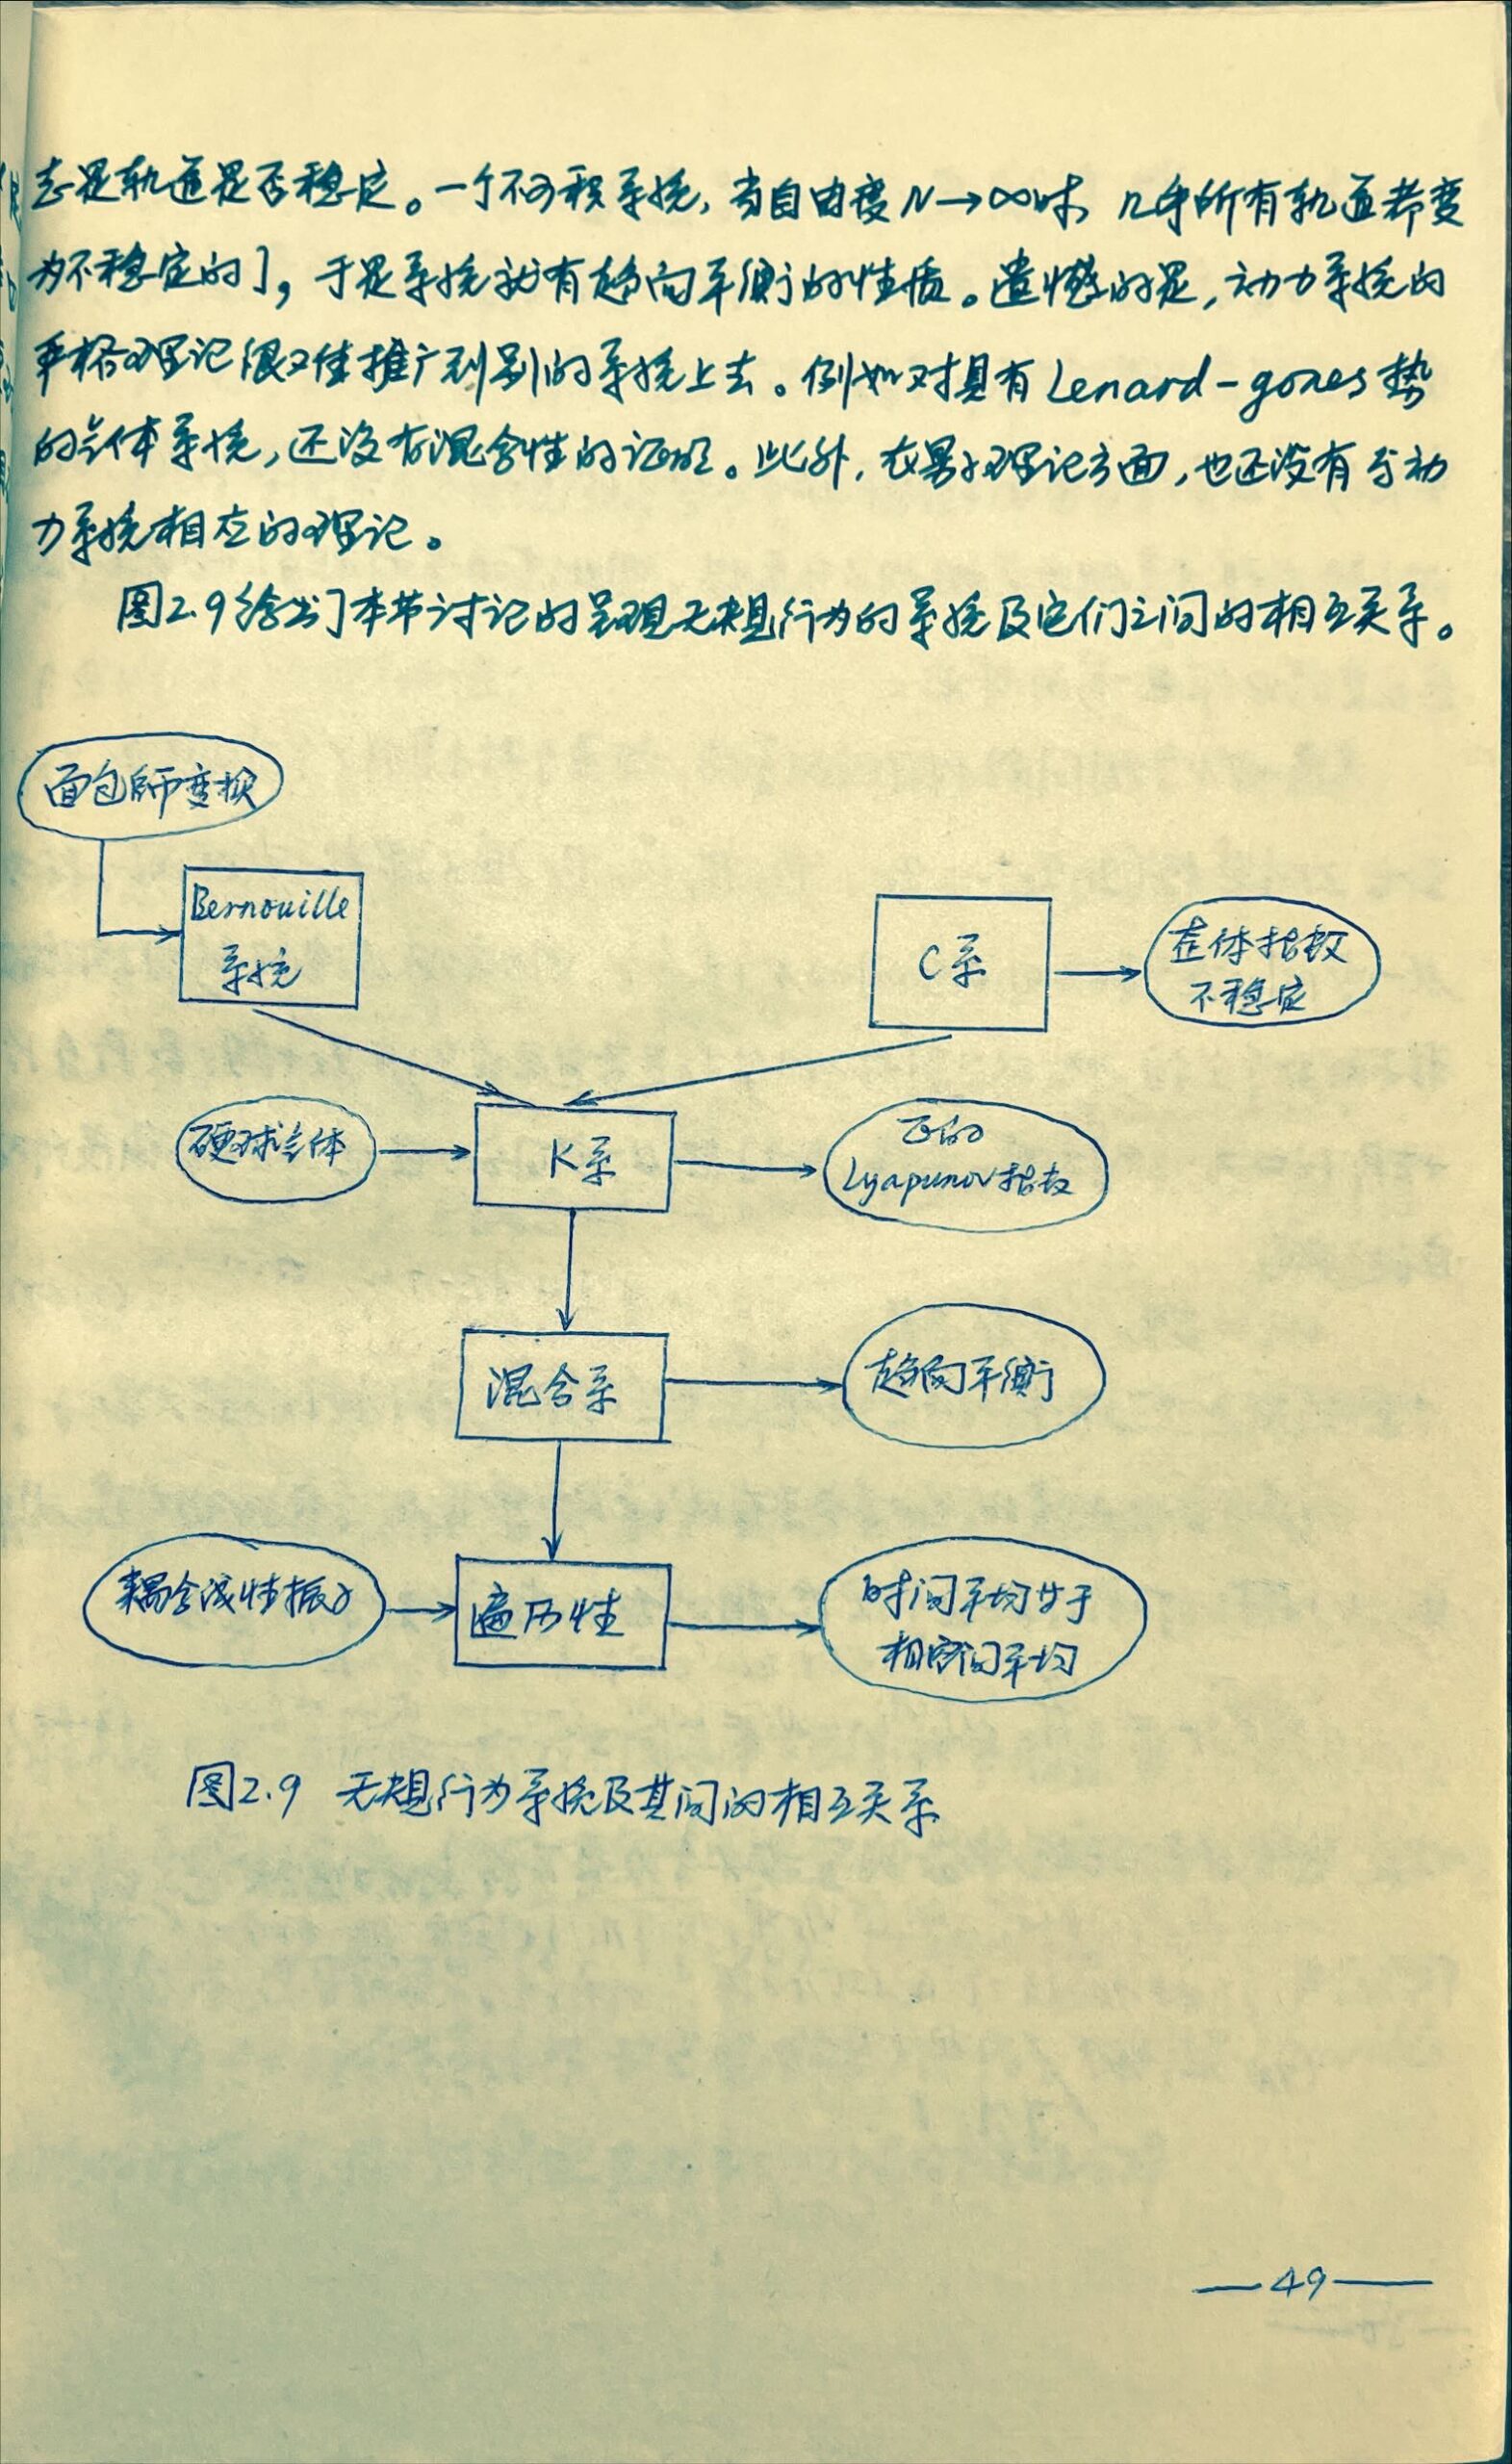 志是轨道是否稳定。一个不可积系统,当自由度N→∞时 几乎所有轨道都变
为不稳定的],于是系统就有趋向平衡的性质。遗憾的是,动力系统的
严格理论很难推广到别的系统上去。例如对具有Lenard-gones势
的气体系统,还没有混合性的证明。此外,在男子理论方面,也还没有与动
力系统相应的理论。
图2.9给出了本节讨论的呈现无规行为的系统及它们之间的相互关系。
面包師变换
Bernouille
系统
C系
整体指数
不稳定
硬球气体
K系
正的
Lyapunov指数
混合系
趋向平衡
耦合线性振子
遍历性
时间平均等于
相空间平均
图2.9 无规行为系统及其间的相互关系
—49—